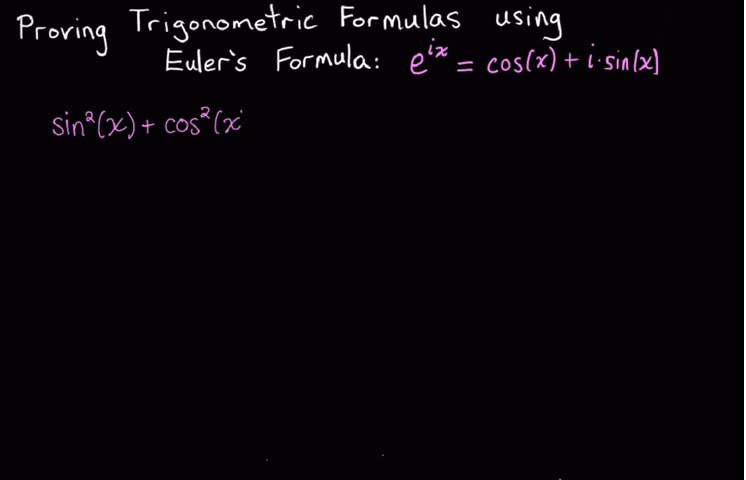 Proving Trigonometric Formulas using
Euler's Formula: e^{ix} = cos(x) + i·sin(x)
sin²(x) + cos²(x